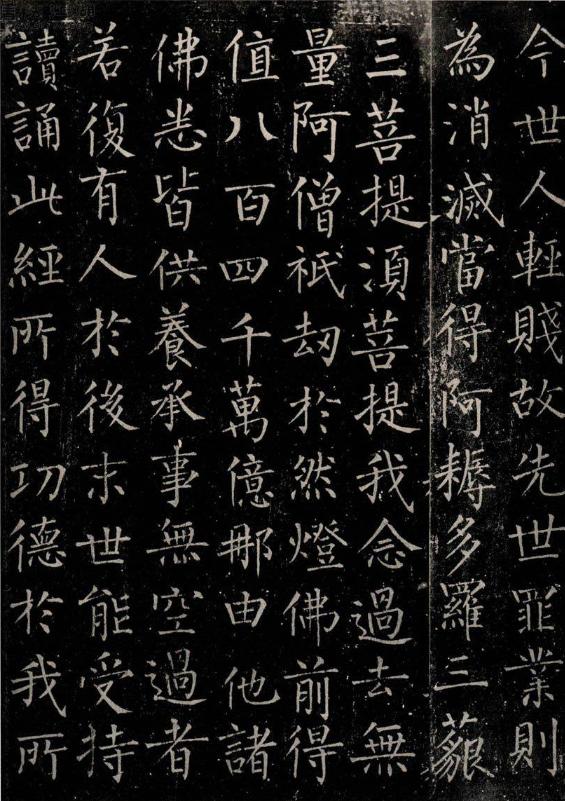 今世人輕賤故先世罪業則
為消滅當得阿耨多羅三藐
三菩提須菩提我念過去無
量阿僧祇劫於然燈佛前得
值八百四千萬億那由他諸
佛悉皆供養承事無空過者
若復有人於後末世能受持
讀誦此經所得功德於我所